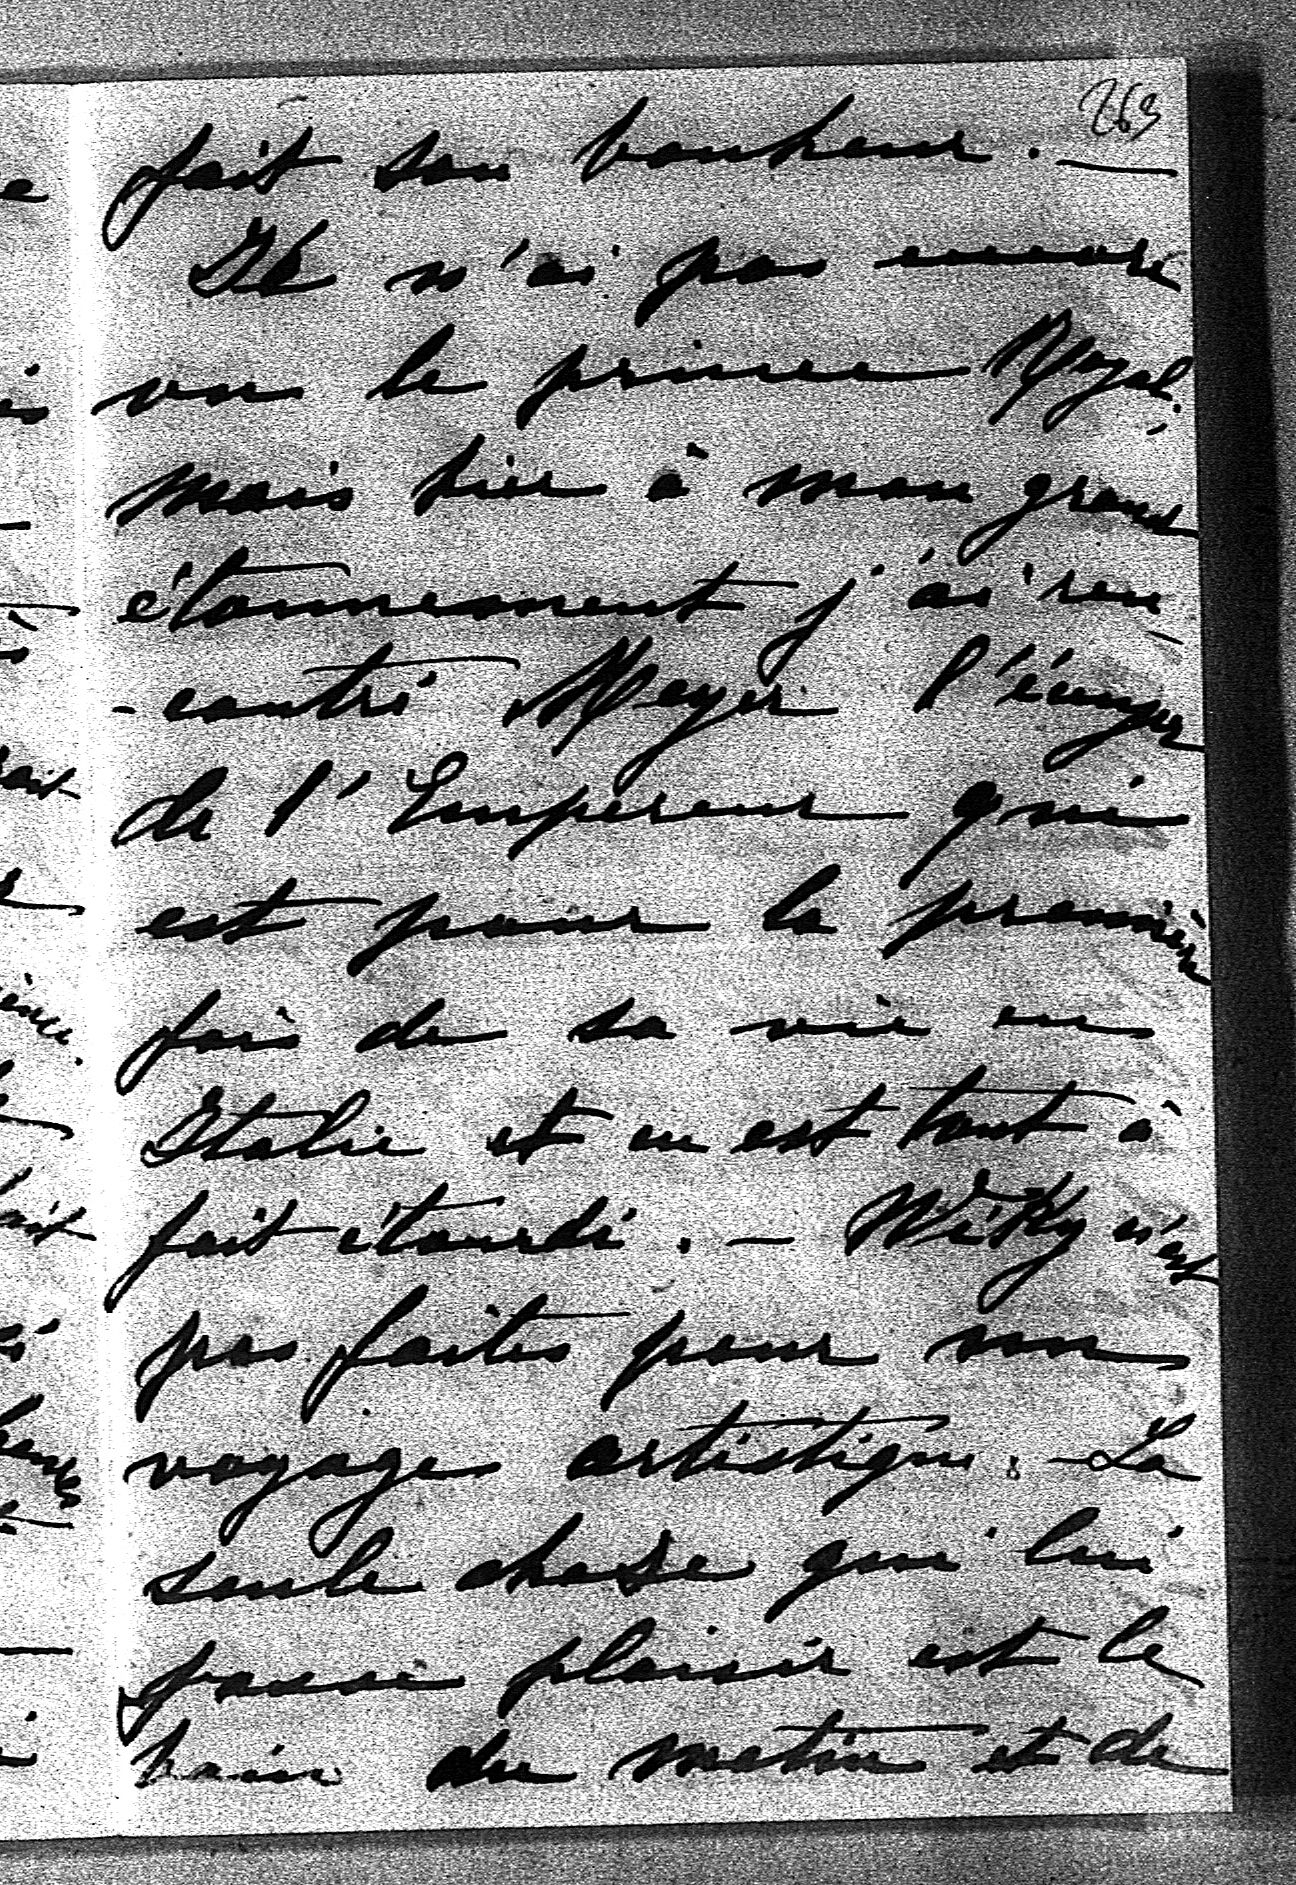 263
fait son bonheur. —
Je n'ai pas encore
vu le prince Royal.
mais hier à mon grand
étonnement j'ai ren
-contré Meyer l'écuyer
de l'Empereur qui
est pour la première
fois de sa vie en
Italie et en est tout à
fait étourdi. — Wiky n'est
pas faites pour un
voyage artistique. — La
seule chose qui lui
fasse plaisir est le
bain du matin et de